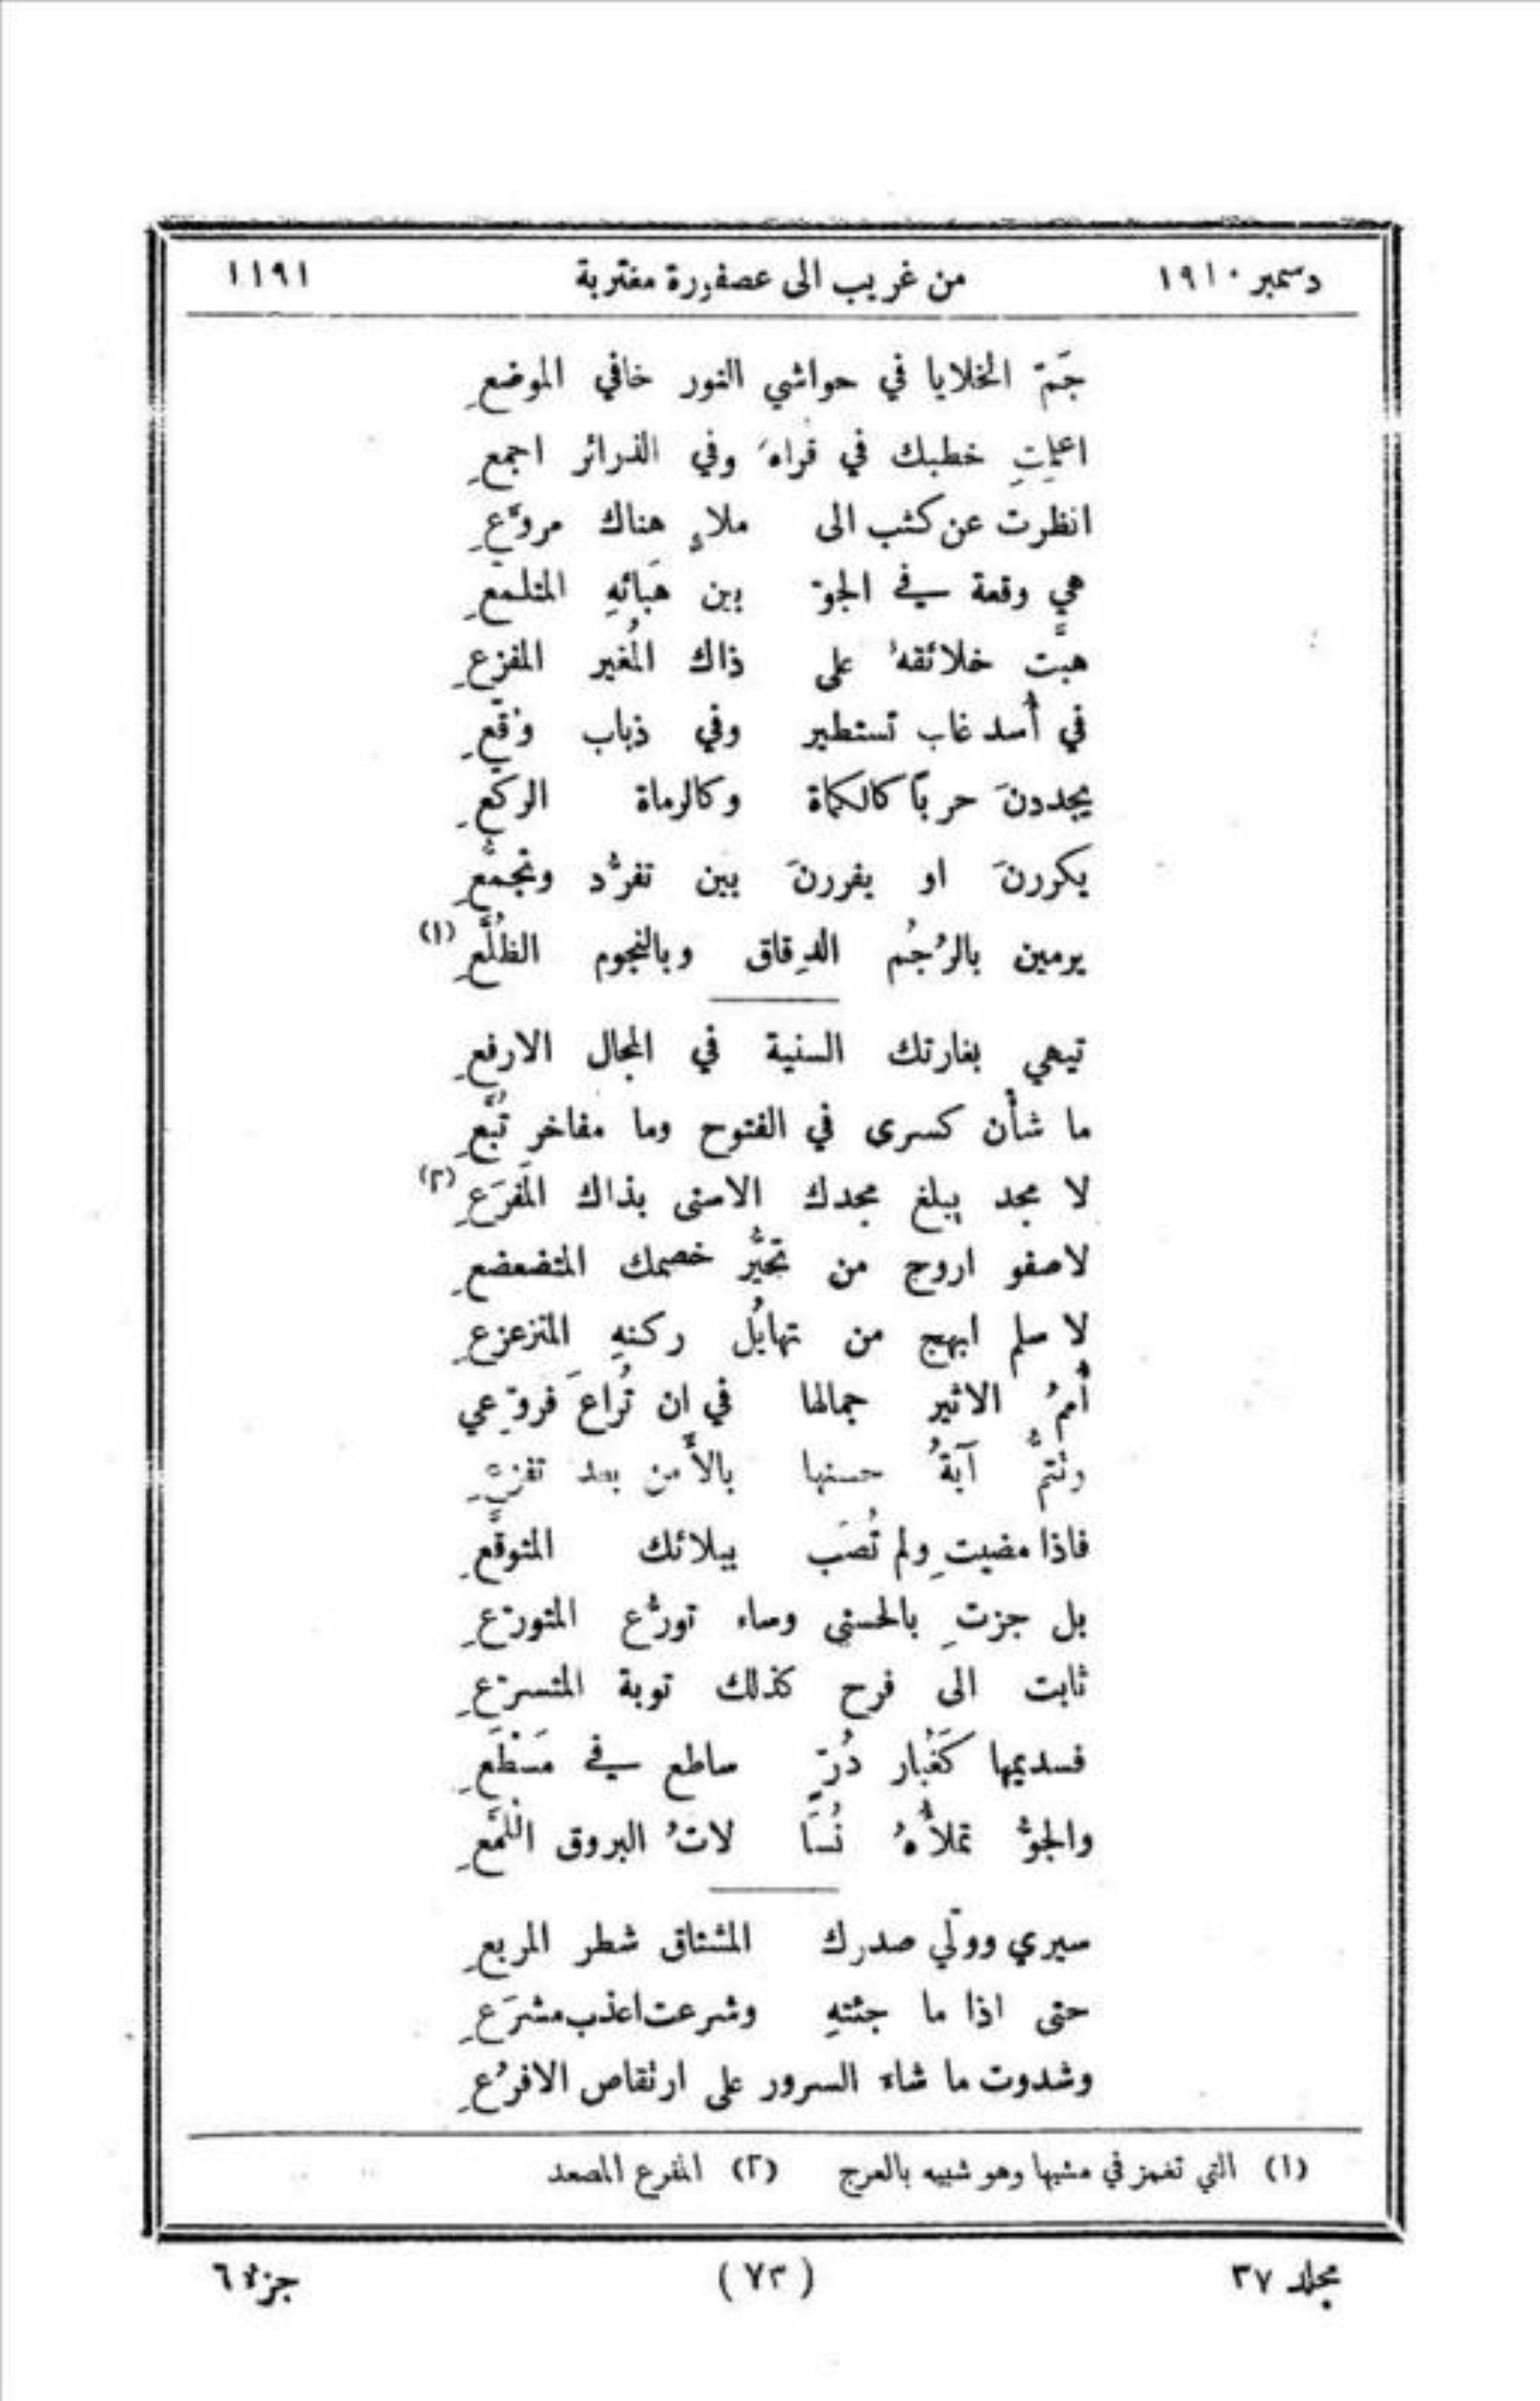 دسمبر ١٩١٠ من غريب الى عصفورة مغتربة ١١٩١
جَمّ الخلايا في حواشي النور خافي الموضعِ
اعلمتِ خطبك في قراهَ وفي الذرائر اجمعِ
انظرت عن كثب الى ملاءٍ هناك مروَّعِ
هي وقعة في الجوّ بين هَبَائهِ المتلمّعِ
هبَّت خلائقهُ على ذاك المُغير المفزعِ
في أُسد غاب تستطير وفي ذباب وُقَّعِ
يجددنَ حربًا كالكماة وكالرماة الركّعِ
يكررنَ او يفررنَ بين تفرُّد وتجمُّعِ
يرمين بالرُجُم الدِقاق وبالنجوم الظُلَّعِ (١)
تيهي بغارتك السنية في المجال الارفعِ
ما شأن كسرى في الفتوح وما مفاخر تُبَّعِ
لا مجد يبلغ مجدك الاسنى بذاك المَفرَعِ (٢)
لا صفو اروح من تحيُّر خصمك المتضعضعِ
لا سلم ابهج من تهايُل ركنهِ المتزعزعِ
أُممُ الاثير جمالها في ان تُراعَ فروّعي
وتتمُّ آيةُ حسنها بالأَمن بعد تفزعِ
فاذا مضيتِ ولم تُصَب ببلائك المتوقَّعِ
بل جزتِ بالحسنى وساء تورُّع المتورّعِ
ثابت الى فرح كذلك توبة المتسرّعِ
فسديمها كَغُبار دُرّ ٍ ساطع في مَسْطَعِ
والجوُّ تملأُهُ نُسَا لاتُ البروق اللُمَّعِ
سيري وولّي صدرك المشتاق شطر المربعِ
حتى اذا ما جئتهِ وشرعت اعذب مشرَعِ
وشدوت ما شاء السرور على ارتقاص الافرُعِ
(١) التي تغمز في مشيها وهو شبيه بالعرج (٢) المفرع المصعد
مجلد ٣٧ (٧٣) جزء ٦